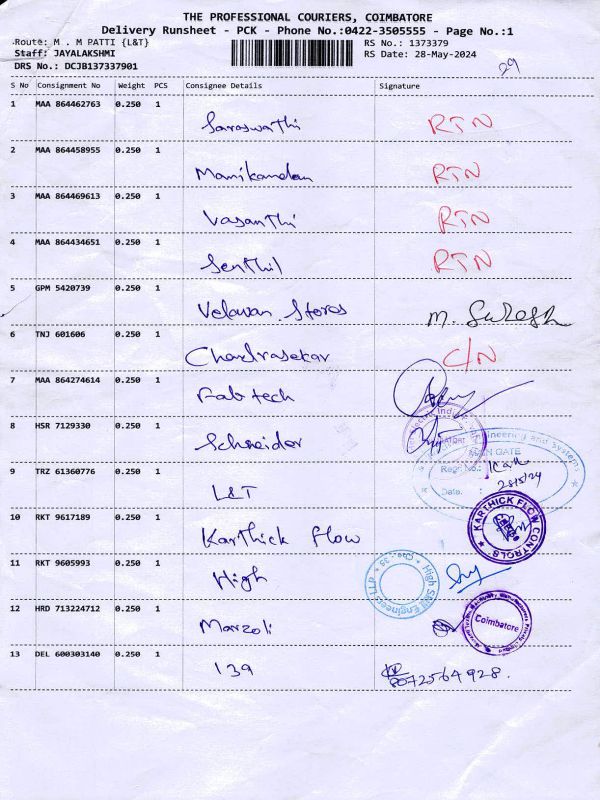 THE PROFESSIONAL COURIERS, COIMBATORE
Delivery Runsheet - PCK - Phone No.:0422-3505555 - Page No.:1
Route: M . M PATTI {L&T} RS No.: 1373379
Staff: JAYALAKSHMI RS Date: 28-May-2024
DRS No.: DCJB137337901 29
S No Consignment No Weight PCS Consignee Details Signature
1 MAA 864462763 0.250 1 Saraswathi RTN
2 MAA 864458955 0.250 1 Manikandan RTN
3 MAA 864469613 0.250 1 Vasanthi RTN
4 MAA 864434651 0.250 1 Senthil RTN
5 GPM 5420739 0.250 1 Velavan Stores M. Suresh
6 TNJ 601606 0.250 1 Chandrasekar C/N
7 MAA 864274614 0.250 1 Fabtech
8 HSR 7129330 0.250 1 Schneider
Engineering and Systems
MAIN GATE
9 TRZ 61360776 0.250 1 L&T Regr. No.:
Date. : 28/5/24
10 RKT 9617189 0.250 1 Karthick Flow KARTHICK FLOW CONTROLS
11 RKT 9605993 0.250 1 High High Skill Engineers LLP
12 HRD 713224712 0.250 1 Marzoli Coimbatore
13 DEL 600303140 0.250 1 139 8072564928.